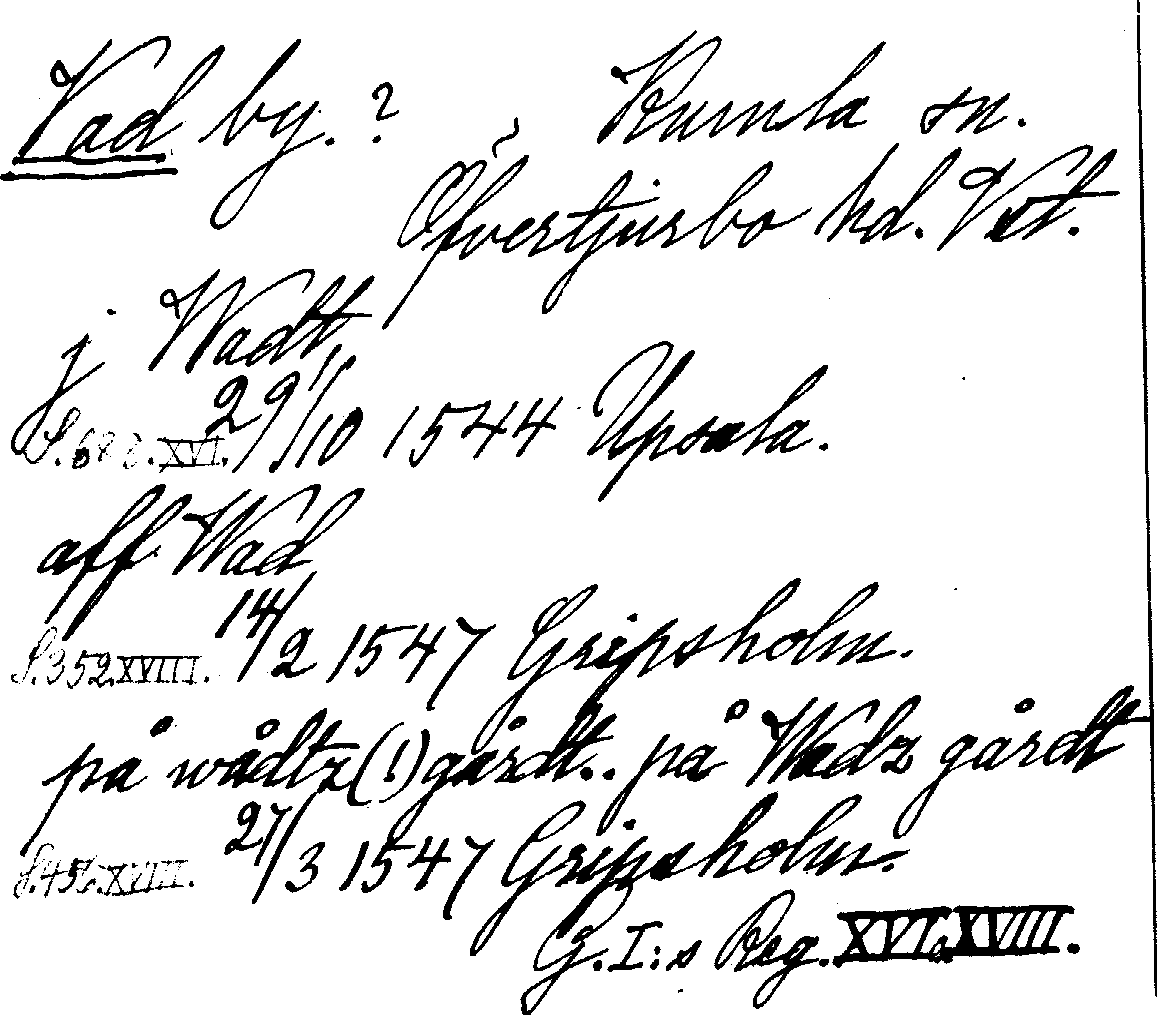 Vad by. ? Kumla sn.
Öfvertjurbo hd. Vst.
j Wadt
S. 682. XVI. 29/10 1544 Upsala.
aff Wad
S. 352. XVIII. 14/2 1547 Gripsholm.
på wådtz (!) gårdt.. på Wadz gårdt
XVIII. 27/3 1547 Gripsholm.
G. I:s Reg. XVI. XVIII.